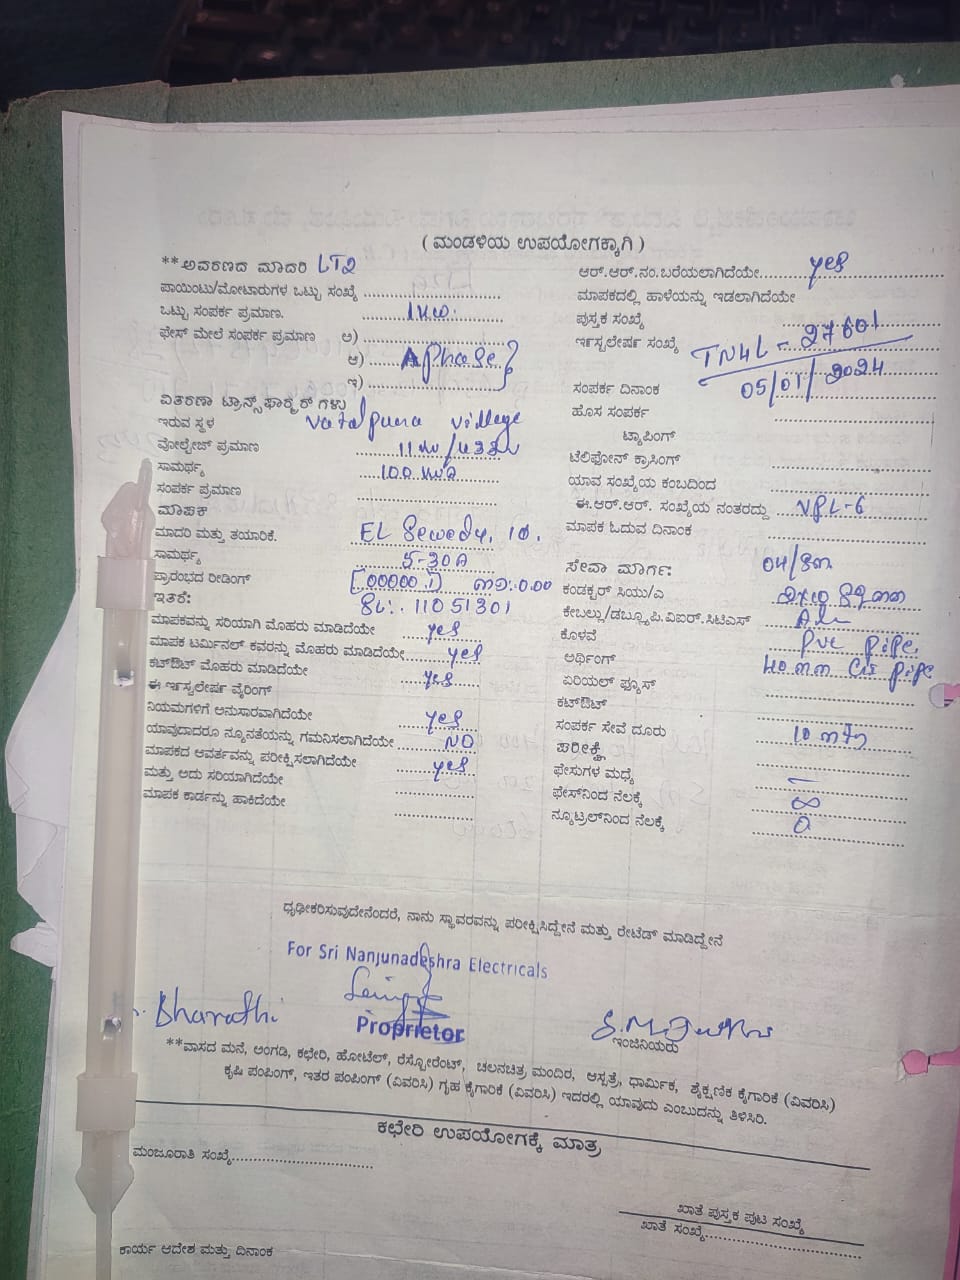 ( ಮಂಡಳಿಯ ಉಪಯೋಗಕ್ಕಾಗಿ )
**ಆವರಣದ ಮಾದರಿ LT2
ಪಾಯಿಂಟು/ಮೋಟಾರುಗಳ ಒಟ್ಟು ಸಂಖ್ಯೆ
ಒಟ್ಟು ಸಂಪರ್ಕ ಪ್ರಮಾಣ. 1KW.
ಫೇಸ್ ಮೇಲೆ ಸಂಪರ್ಕ ಪ್ರಮಾಣ ಅ)
ಆ) A phase
ಇ)
ವಿತರಣಾ ಟ್ರಾನ್ಸ್‌ಫಾರ್ಮರ್ ಗಳು
ಇರುವ ಸ್ಥಳ village
ವೋಲ್ಟೇಜ್ ಪ್ರಮಾಣ
ಸಾಮರ್ಥ್ಯ 100 KVA
ಸಂಪರ್ಕ ಪ್ರಮಾಣ
ಮಾಪಕ
ಮಾದರಿ ಮತ್ತು ತಯಾರಿಕೆ. EL Sewedy,
ಸಾಮರ್ಥ್ಯ 5-30A
ಪ್ರಾರಂಭದ ರೀಡಿಂಗ್
ಇತರೆ: SL:. 11051301
ಮಾಪಕವನ್ನು ಸರಿಯಾಗಿ ಮೊಹರು ಮಾಡಿದೆಯೇ yes
ಮಾಪಕ ಟರ್ಮಿನಲ್ ಕವರನ್ನು ಮೊಹರು ಮಾಡಿದೆಯೇ yes
ಕಟ್‌ಔಟ್ ಮೊಹರು ಮಾಡಿದೆಯೇ yes
ಈ ಇನ್ಸ್ಟಲೇಷನ್ ವೈರಿಂಗ್
ನಿಯಮಗಳಿಗೆ ಅನುಸಾರವಾಗಿದೆಯೇ yes
ಯಾವುದಾದರೂ ನ್ಯೂನತೆಯನ್ನು ಗಮನಿಸಲಾಗಿದೆಯೇ NO
ಮಾಪಕದ ಆವರ್ತವನ್ನು ಪರೀಕ್ಷಿಸಲಾಗಿದೆಯೇ yes
ಮತ್ತು ಅದು ಸರಿಯಾಗಿದೆಯೇ
ಮಾಪಕ ಕಾರ್ಡನ್ನು ಹಾಕಿದೆಯೇ
ಆರ್.ಆರ್.ನಂ.ಬರೆಯಲಾಗಿದೆಯೇ yes
ಮಾಪಕದಲ್ಲಿ ಹಾಳೆಯನ್ನು ಇಡಲಾಗಿದೆಯೇ
ಪುಸ್ತಕ ಸಂಖ್ಯೆ
ಇನ್ಸ್ಟಲೇಷನ್ ಸಂಖ್ಯೆ TN4L - 27601
05/01/2024
ಸಂಪರ್ಕ ದಿನಾಂಕ
ಹೊಸ ಸಂಪರ್ಕ
ಟ್ಯಾಪಿಂಗ್
ಟೆಲಿಫೋನ್ ಕ್ರಾಸಿಂಗ್
ಯಾವ ಸಂಖ್ಯೆಯ ಕಂಬದಿಂದ
ಈ.ಆರ್.ಆರ್. ಸಂಖ್ಯೆಯ ನಂತರದ್ದು VPL-6
ಮಾಪಕ ಓದುವ ದಿನಾಂಕ
ಸೇವಾ ಮಾರ್ಗ:
ಕಂಡಕ್ಟರ್ ಸಿಯು/ಎ
ಕೇಬಲ್ಲು/ಡಬ್ಲ್ಯೂ.ಪಿ.ವಿಐಆರ್.ಸಿಟಿಎಸ್
ಕೊಳವೆ PVC pipe,
ಅರ್ಥಿಂಗ್ 40mm GI pipe
ಏರಿಯಲ್ ಫ್ಯೂಸ್
ಕಟ್‌ಔಟ್
ಸಂಪರ್ಕ ಸೇವೆ ದೂರು
ಪರೀಕ್ಷೆ
ಫೇಸುಗಳ ಮಧ್ಯೆ –
ಫೇಸ್‌ನಿಂದ ನೆಲಕ್ಕೆ ∞
ನ್ಯೂಟ್ರಲ್‌ನಿಂದ ನೆಲಕ್ಕೆ 0
ಧೃಢೀಕರಿಸುವುದೇನೆಂದರೆ, ನಾನು ಸ್ಥಾವರವನ್ನು ಪರೀಕ್ಷಿಸಿದ್ದೇನೆ ಮತ್ತು ರೇಟೆಡ್ ಮಾಡಿದ್ದೇನೆ
For Sri Nanjunadeshra Electricals
Bharathi
Proprietor
ಇಂಜಿನಿಯರು
**ವಾಸದ ಮನೆ, ಅಂಗಡಿ, ಕಛೇರಿ, ಹೋಟೆಲ್, ರೆಸ್ಟೋರೆಂಟ್, ಚಲನಚಿತ್ರ ಮಂದಿರ, ಆಸ್ಪತ್ರೆ, ಧಾರ್ಮಿಕ, ಶೈಕ್ಷಣಿಕ ಕೈಗಾರಿಕೆ (ವಿವರಿಸಿ)
ಕೃಷಿ ಪಂಪಿಂಗ್, ಇತರ ಪಂಪಿಂಗ್ (ವಿವರಿಸಿ) ಗೃಹ ಕೈಗಾರಿಕೆ (ವಿವರಿಸಿ) ಇದರಲ್ಲಿ ಯಾವುದು ಎಂಬುದನ್ನು ತಿಳಿಸಿರಿ.
ಕಛೇರಿ ಉಪಯೋಗಕ್ಕೆ ಮಾತ್ರ
ಮಂಜೂರಾತಿ ಸಂಖ್ಯೆ
ಖಾತೆ ಪುಸ್ತಕ ಪುಟ ಸಂಖ್ಯೆ
ಖಾತೆ ಸಂಖ್ಯೆ
ಕಾರ್ಯ ಆದೇಶ ಮತ್ತು ದಿನಾಂಕ